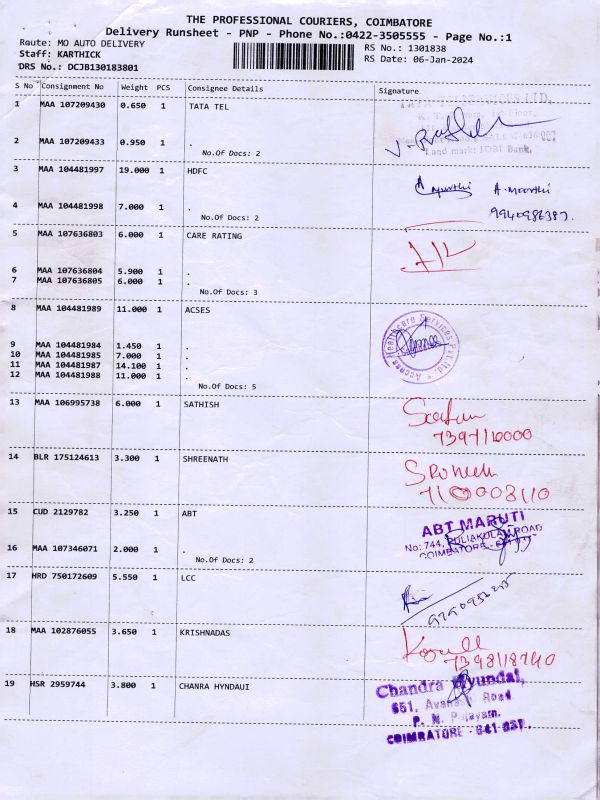 THE PROFESSIONAL COURIERS, COIMBATORE
Delivery Runsheet - PNP - Phone No.:0422-3505555 - Page No.:1
Route: MO AUTO DELIVERY RS No.: 1301838
Staff: KARTHICK RS Date: 06-Jan-2024
DRS No.: DCJB130183801
S No Consignment No Weight PCS Consignee Details Signature
1 MAA 107209430 0.650 1 TATA TEL
2 MAA 107209433 0.950 1 .
Land mark: IDBI Bank,
No.Of Docs: 2
3 MAA 104481997 19.000 1 HDFC
A. Moorthi
4 MAA 104481998 7.000 1 .
No.Of Docs: 2
5 MAA 107636803 6.000 1 CARE RATING
6 MAA 107636804 5.900 1 .
7 MAA 107636805 6.000 1 .
No.Of Docs: 3
8 MAA 104481989 11.000 1 ACSES
Access Healthcare Services Pvt.Ltd.
9 MAA 104481984 1.450 1 .
10 MAA 104481985 7.000 1 .
11 MAA 104481987 14.100 1 .
12 MAA 104481988 11.000 1 .
No.Of Docs: 5
13 MAA 106995738 6.000 1 SATHISH
14 BLR 175124613 3.300 1 SHREENATH
15 CUD 2129782 3.250 1 ABT
ABT MARUTI
No: 744, PULIAKULAM ROAD
COIMBATORE
16 MAA 107346071 2.000 1 .
No.Of Docs: 2
17 HRD 750172609 5.550 1 LCC
18 MAA 102876055 3.650 1 KRISHNADAS
19 HSR 2959744 3.800 1 CHANRA HYNDAUI
Chandra Hyundai,
Road
COIMBATORE